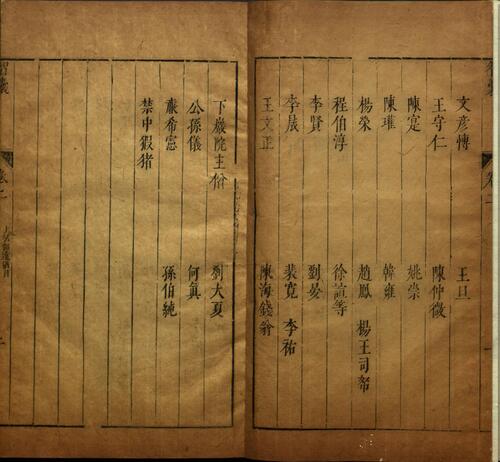 文彥愽　王旦
王守仁　陳仲微
陳寔　姚崇
陳瓘　韓雍
楊榮　趙鳳　楊王司帑
程伯淳　徐誼等
李賢　劉晏
李晟　裴寬　李祐
王文正　陳海錢翁
下巖院主僧　劉大夏
公孫儀　何眞
廉希憲　孫伯純
禁中豭猪
卷二